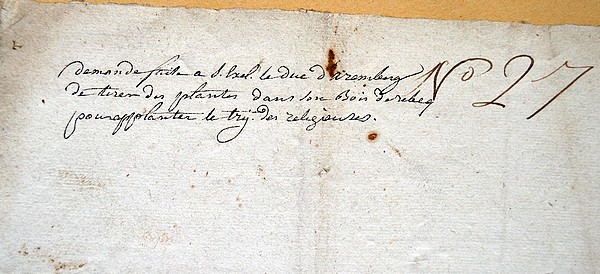 demande faite a S. Exel. le duc d'aremberg
de tirer des plantes dans son Bois de rebecq
pour applanter le trij. des religieuses.
No 27